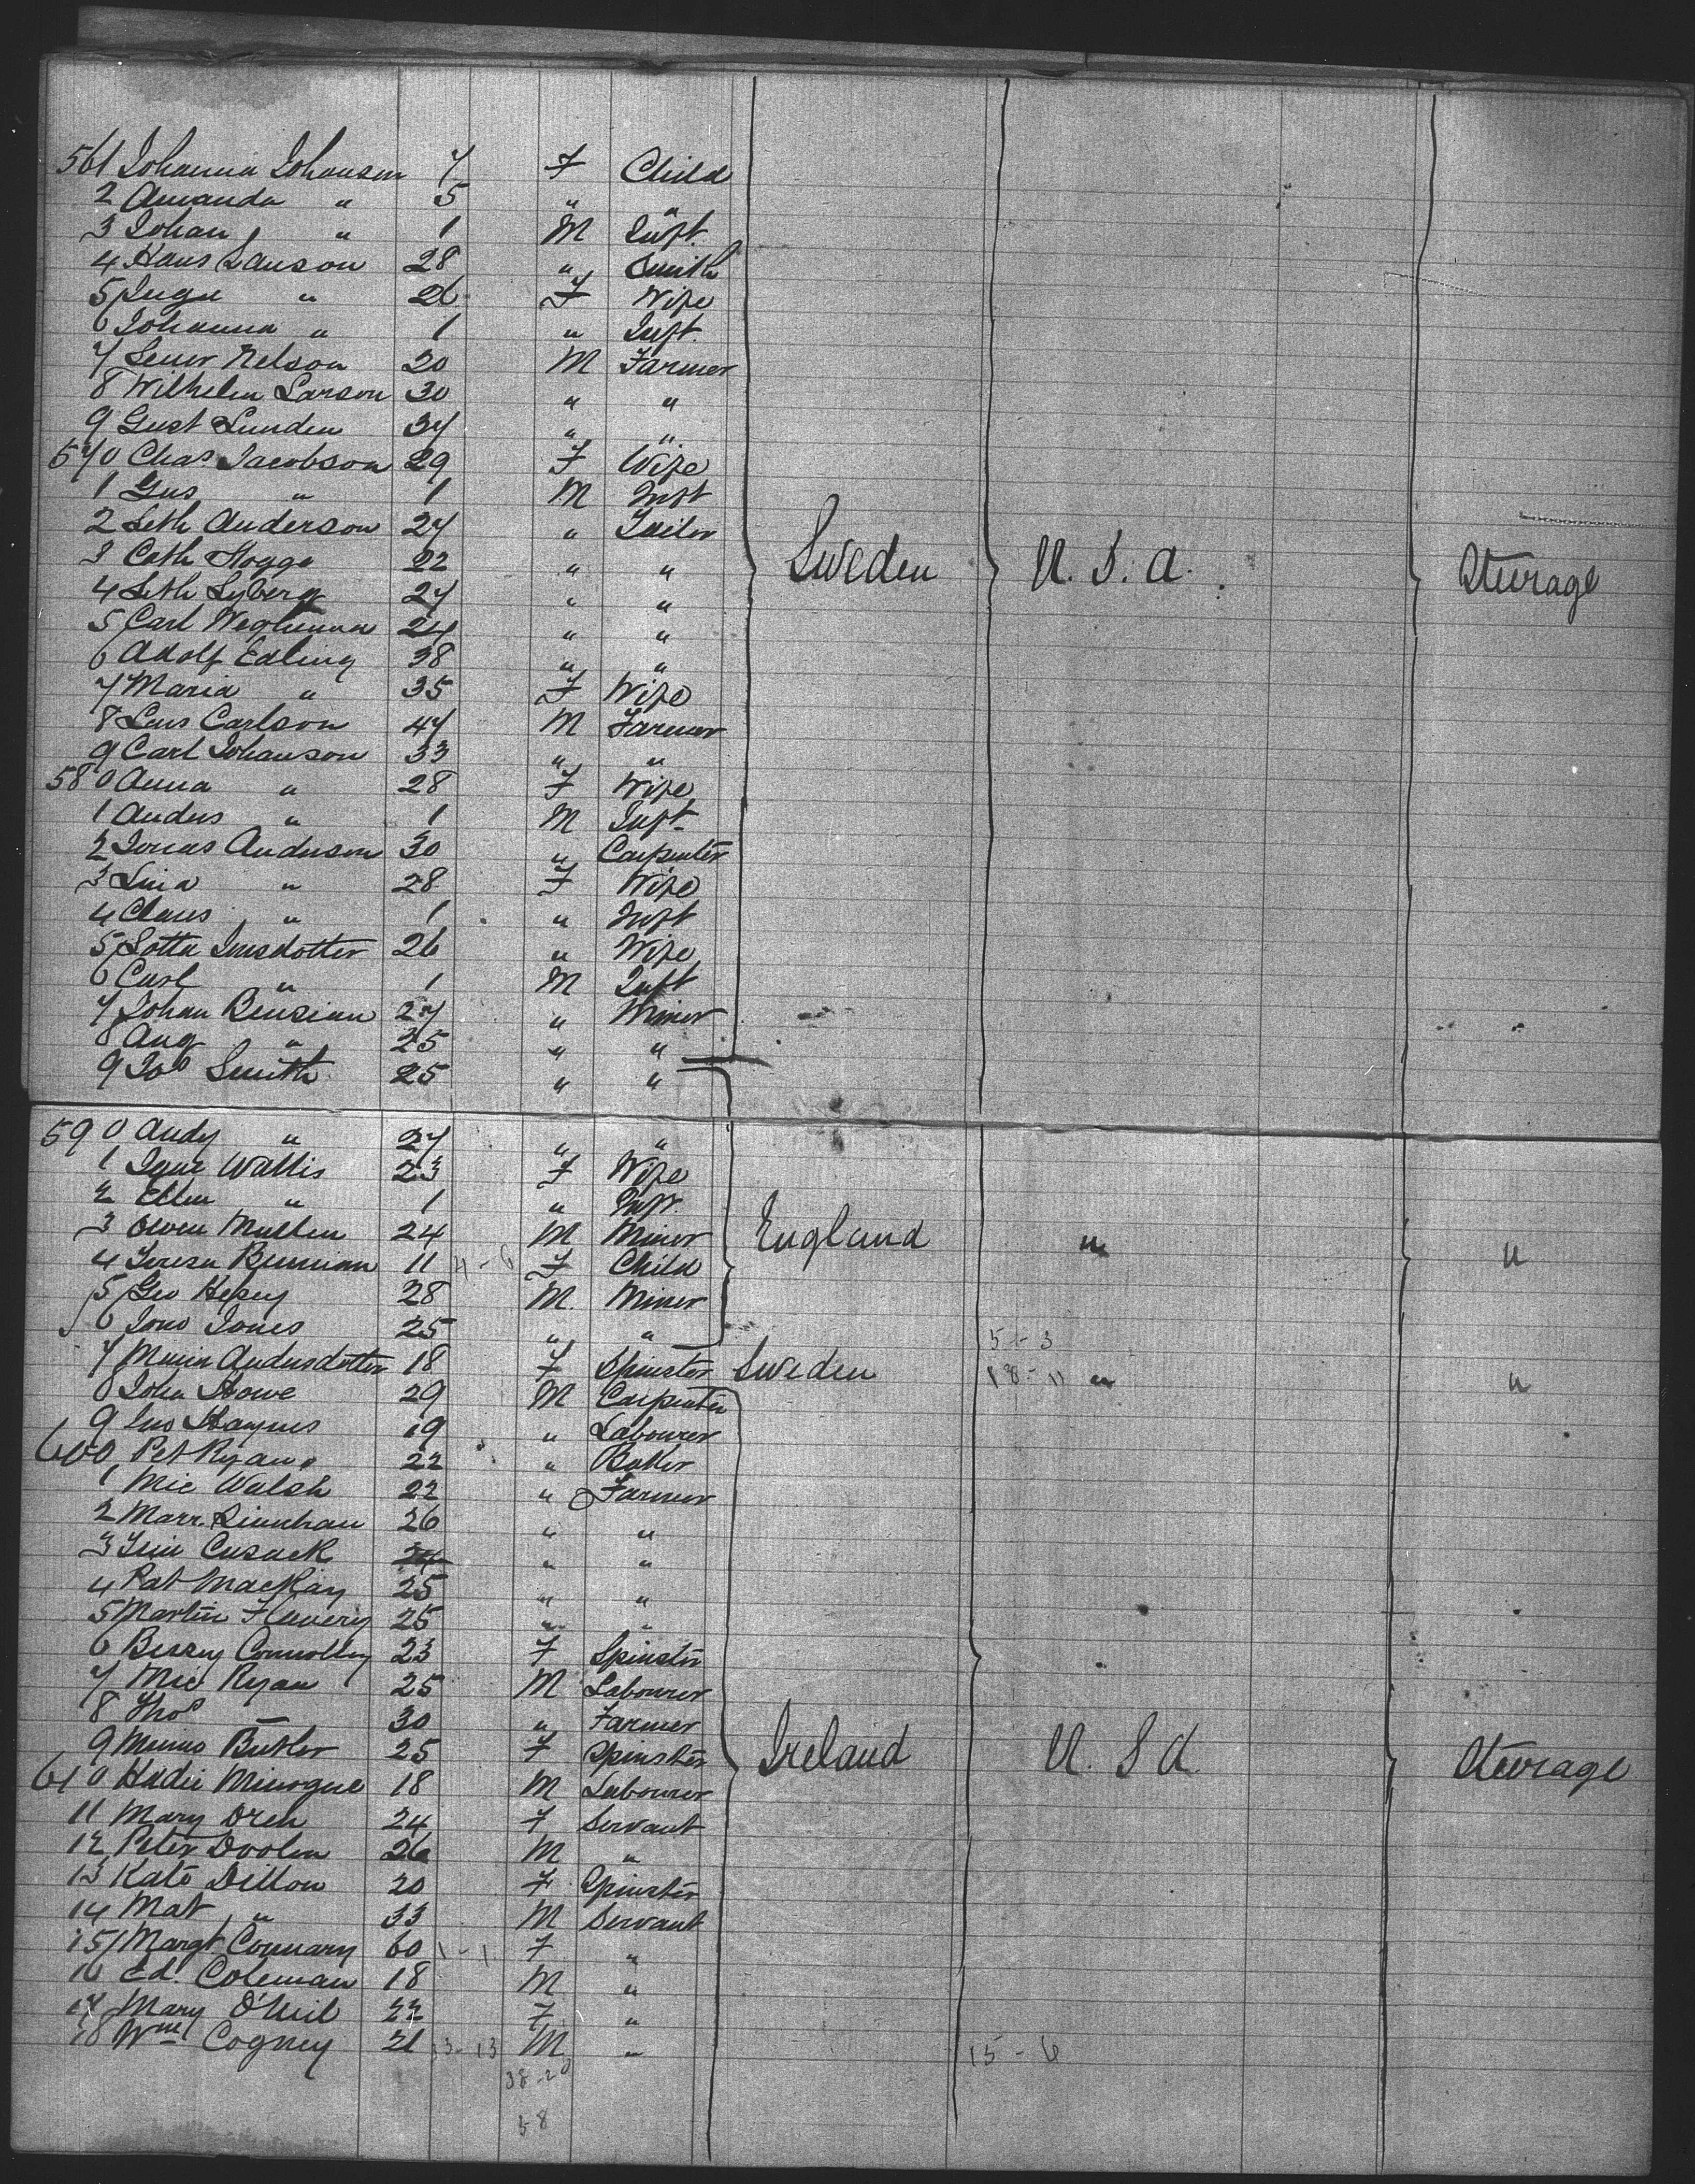 561 Johanna Johanson 7 F Child
2 Amanda " 5 " "
3 Johan " 1 M Inft.
4 Hans Lauson 28 " Smith
5 Inga " 26 F Wife
6 Johanna " 1 " Inft.
7 Nelson 20 M Farmer
8 Wilhelm Larson 30 " "
9 Gust Lunden 34 " "
570 Chas Jacobson 29 F Wife
1 Gus " 1 M Inft
2 Seth Anderson 27 " Tailor
3 Cath Hogge 22 " "
4 Seth Syberg 27 " "
5 Carl 24 " "
6 Adolf Edling 38 " "
7 Maria " 35 F Wife
8 Lars Carlson 47 M Farmer
9 Carl Johanson 33 " "
580 Anna " 28 F Wife
1 Anders " 1 M Inft
2 Jonas Anderson 30 " Carpenter
3 Lina " 28 F Wife
4 Claus " 1 " Inft
5 Lotta Jonsdotter 26 " Wife
6 Carl " 1 M Inft
7 Johan 27 " Miner
8 Aug " 25 " "
Sweden U. S. A. Steerage
9 Jos Smith 25 " "
590 Andy " 27 " "
1 Jane Wallis 23 F Wife
2 Ellen " 1 " Inft.
3 Owen Mullen 24 M Miner
4 Teresa 11 F Child
5 Geo 28 M. Miner
6 Jono Jones 25 " "
England " "
7 Maria Andersdotter 18 F Spinster Sweden " "
8 John Howe 29 M Carpenter
9 Jno Haynes 19 " Labourer
600 Pet Ryan 22 " Baker
1 Mic Walsh 22 " Farmer
2 Marr. Linnehan 26 " "
3 Tim Cusack 24 " "
4 Pat MacKay 25 " "
5 Martin 25 " "
6 Connolly 23 F Spinster
7 Mic Ryan 25 M Labourer
8 Thos 30 " Farmer
9 Butler 25 F Spinster
610 Minogue 18 M Labourer
11 Mary 24 F Servant
12 Peter Doolen 26 M "
13 Kate Dillon 20 F Spinster
14 Mat " 33 M Servant
15 Margt Connary 60 1-1 F "
16 Ed. Coleman 18 M "
17 Mary O'Neil 22 F "
18 Wm Cogney 21 13-13 M " 15-6
Ireland U. S A. Steerage
38-20
58